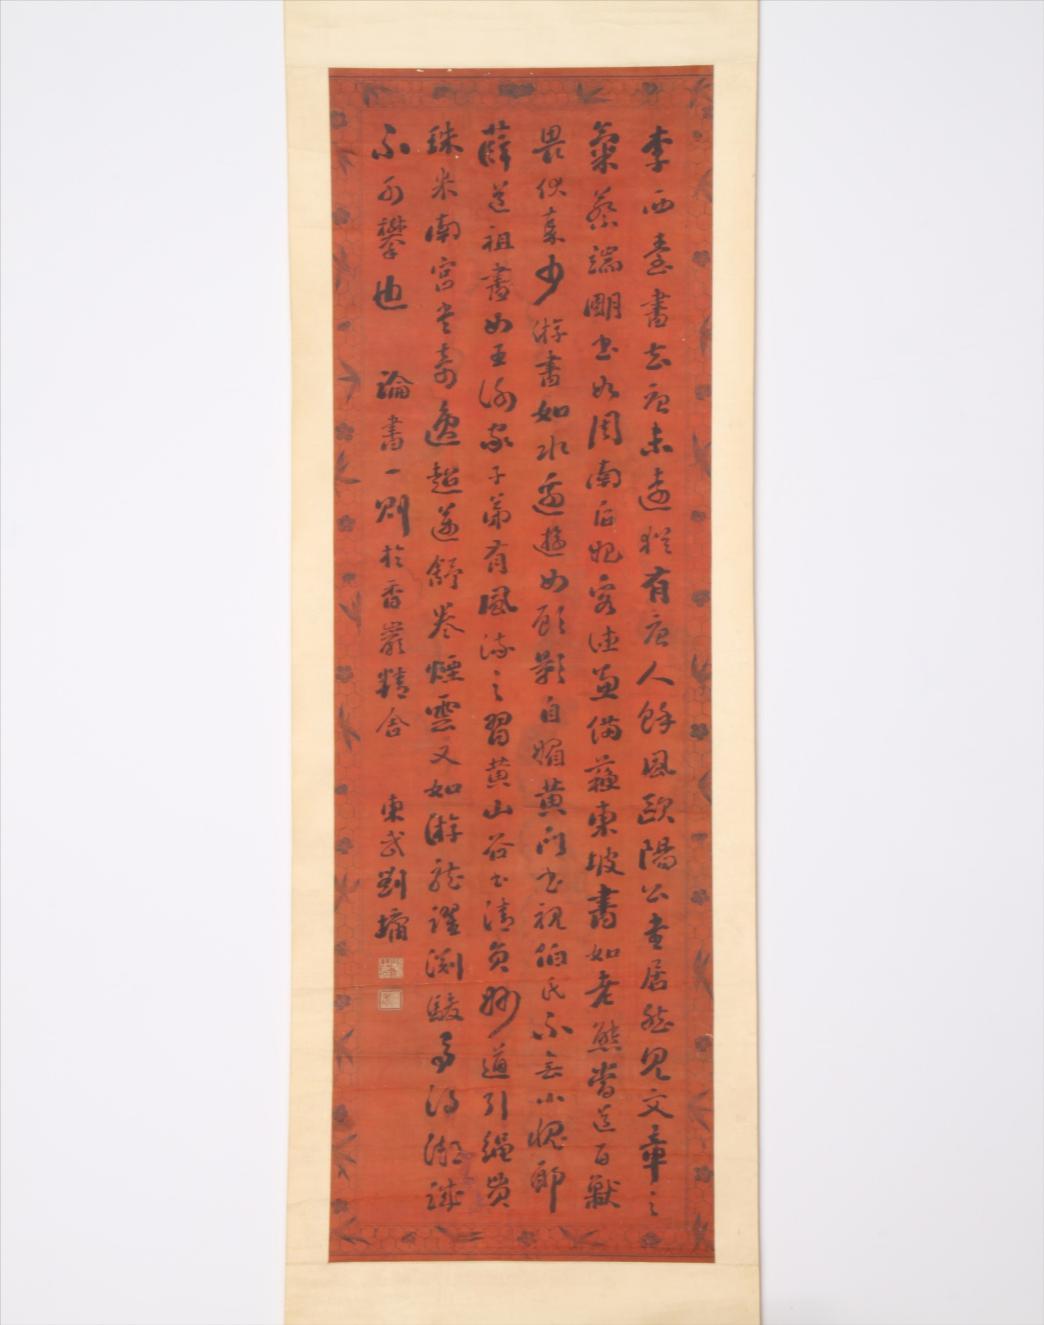 李西臺書去唐未遠猶有唐人餘風歐陽公書居然見文章之
氣蔡端明書如周南后妃容德兼備蘇東坡書如老熊當道百獸
畏伏秦少游書如水邊遊女顧影自媚黃門書視伯氏不無小愧耶
薛道祖書如王謝家子弟有風流之習黃山谷書清負妙道引繩貫
珠米南宮書奇逸超邁舒卷煙雲又如游龍躍淵駿馬得御矯
不可攀也 論書一則於香巖精舍 東武劉墉